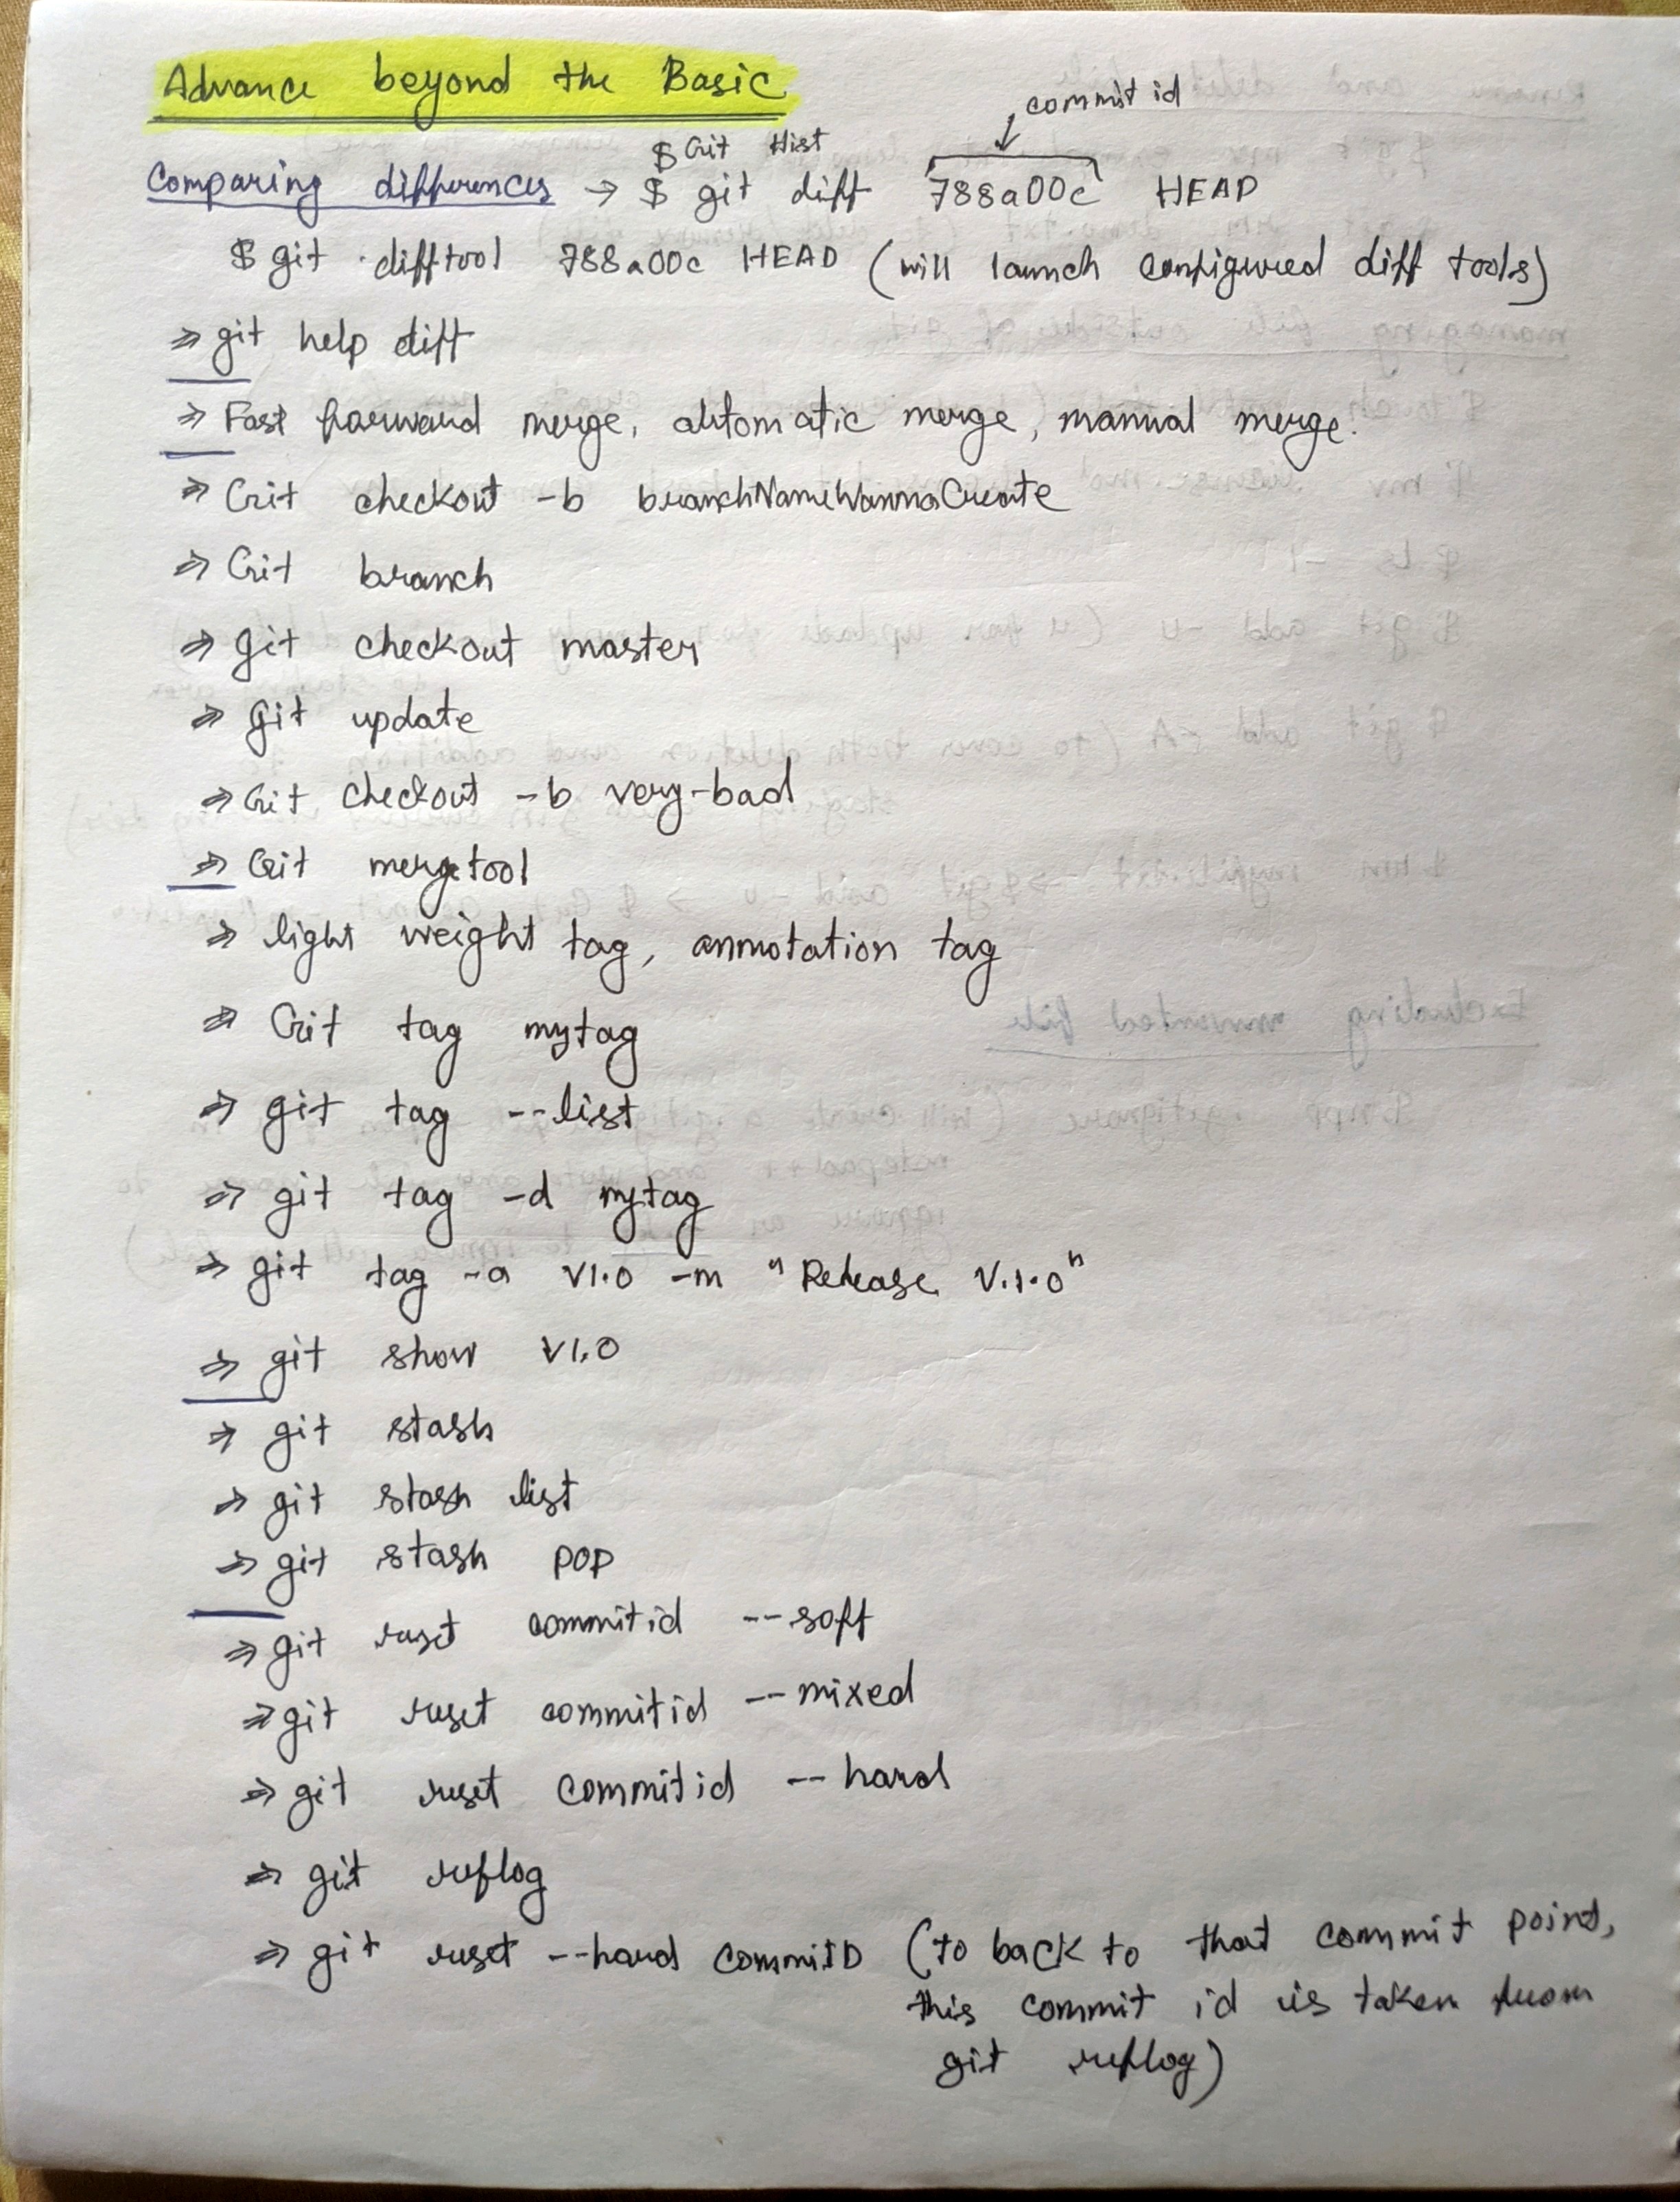 Advance beyond the Basic
commit id
$ Git Hist
Comparing differences → $ git diff 788a00c HEAD
$ git difftool 788a00c HEAD (will launch configured diff tools)
⇒ git help diff
⇒ Fast forward merge, automatic merge, manual merge.
⇒ Git checkout -b branchNameWannaCreate
⇒ Git branch
⇒ git checkout master
⇒ git update
⇒ Git checkout -b very-bad
⇒ Git mergetool
⇒ light weight tag, annotation tag
⇒ Git tag mytag
⇒ git tag --list
⇒ git tag -d mytag
⇒ git tag -a v1.0 -m "Release V.1.0"
⇒ git show v1.0
⇒ git stash
⇒ git stash list
⇒ git stash pop
⇒ git reset commitid --soft
⇒ git reset commitid --mixed
⇒ git reset commitid --hard
⇒ git reflog
⇒ git reset --hard commitID (to back to that commit point,
this commit id is taken from
git reflog)